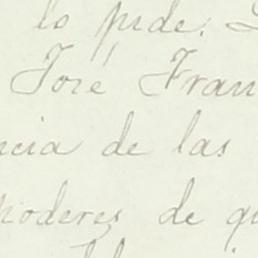 lo pide.
José Fran
ncia de las
poderes de qu